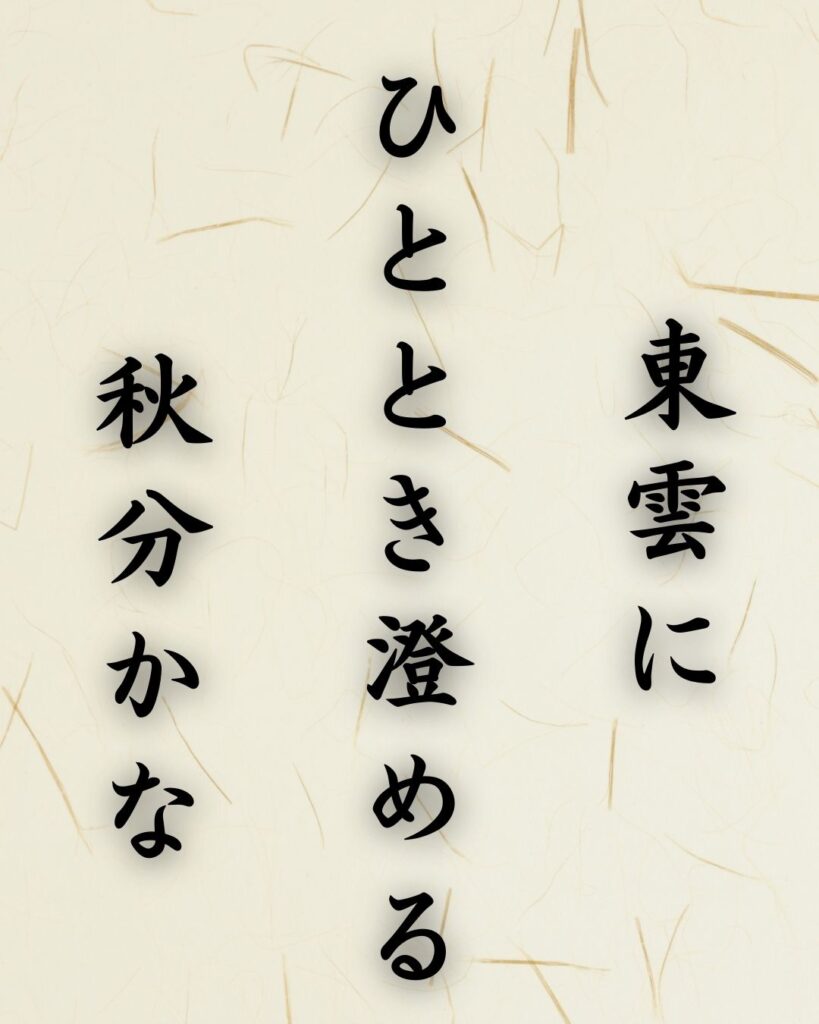 東雲に
ひととき澄める
秋分かな